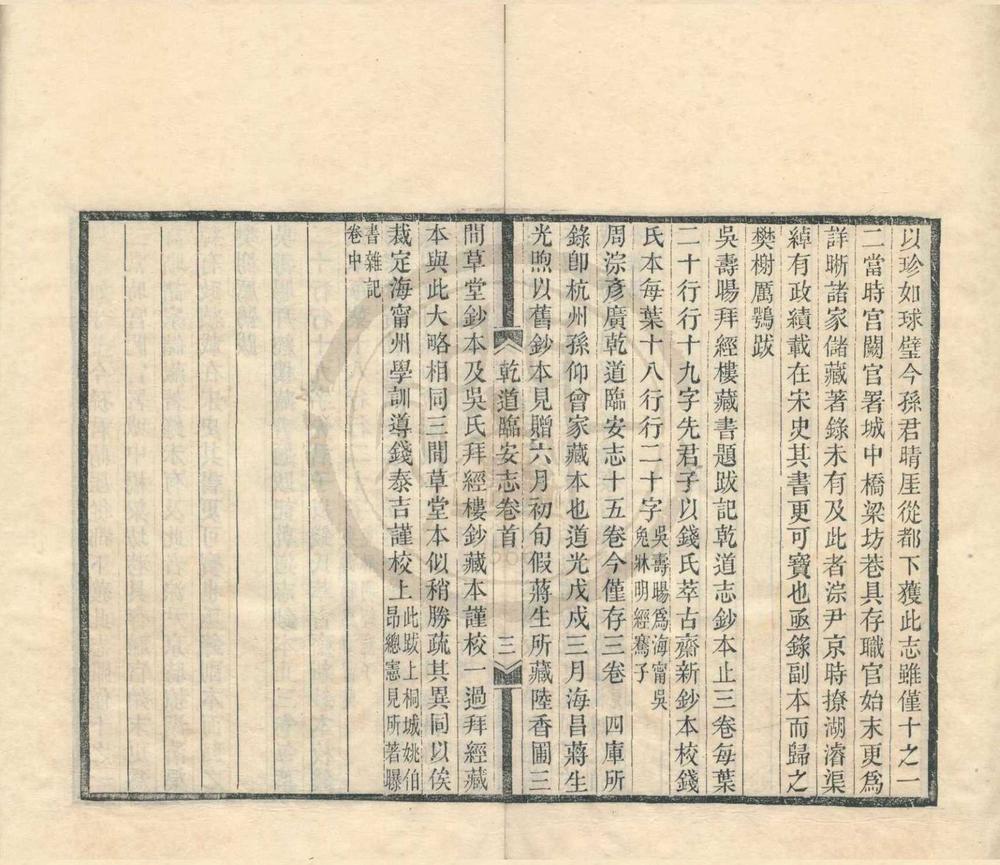 以珍如球璧今孫君晴厓從都下獲此志雖僅十之一
二當時宫闕官署城中橋梁坊巷具存職官始末更爲
詳晰諸家儲藏著錄未有及此者淙尹京時撩湖濬渠
綽有政績載在宋史其書更可寶也亟錄副本而歸之
樊榭厲鶚跋
吳壽暘拜經樓藏書題跋記乾道志鈔本止三卷每葉
二十行行十九字先君子以錢氏萃古齋新鈔本校錢
氏本每葉十八行行二十字吳壽暘爲海甯吳
兔牀明經騫子
周淙彥廣乾道臨安志十五卷今僅存三卷 四庫所
錄卽杭州孫仰曾家藏本也道光戊戌三月海昌蔣生
光煦以舊鈔本見贈六月初旬假蔣生所藏陸香圃三
乾道臨安志卷首 三
間草堂鈔本及吳氏拜經樓鈔藏本謹校一過拜經藏
本與此大略相同三間草堂本似稍勝疏其異同以俟
裁定海甯州學訓導錢泰吉謹校上此跋上桐城姚伯
昂總憲見所著曝
書雜記
卷中